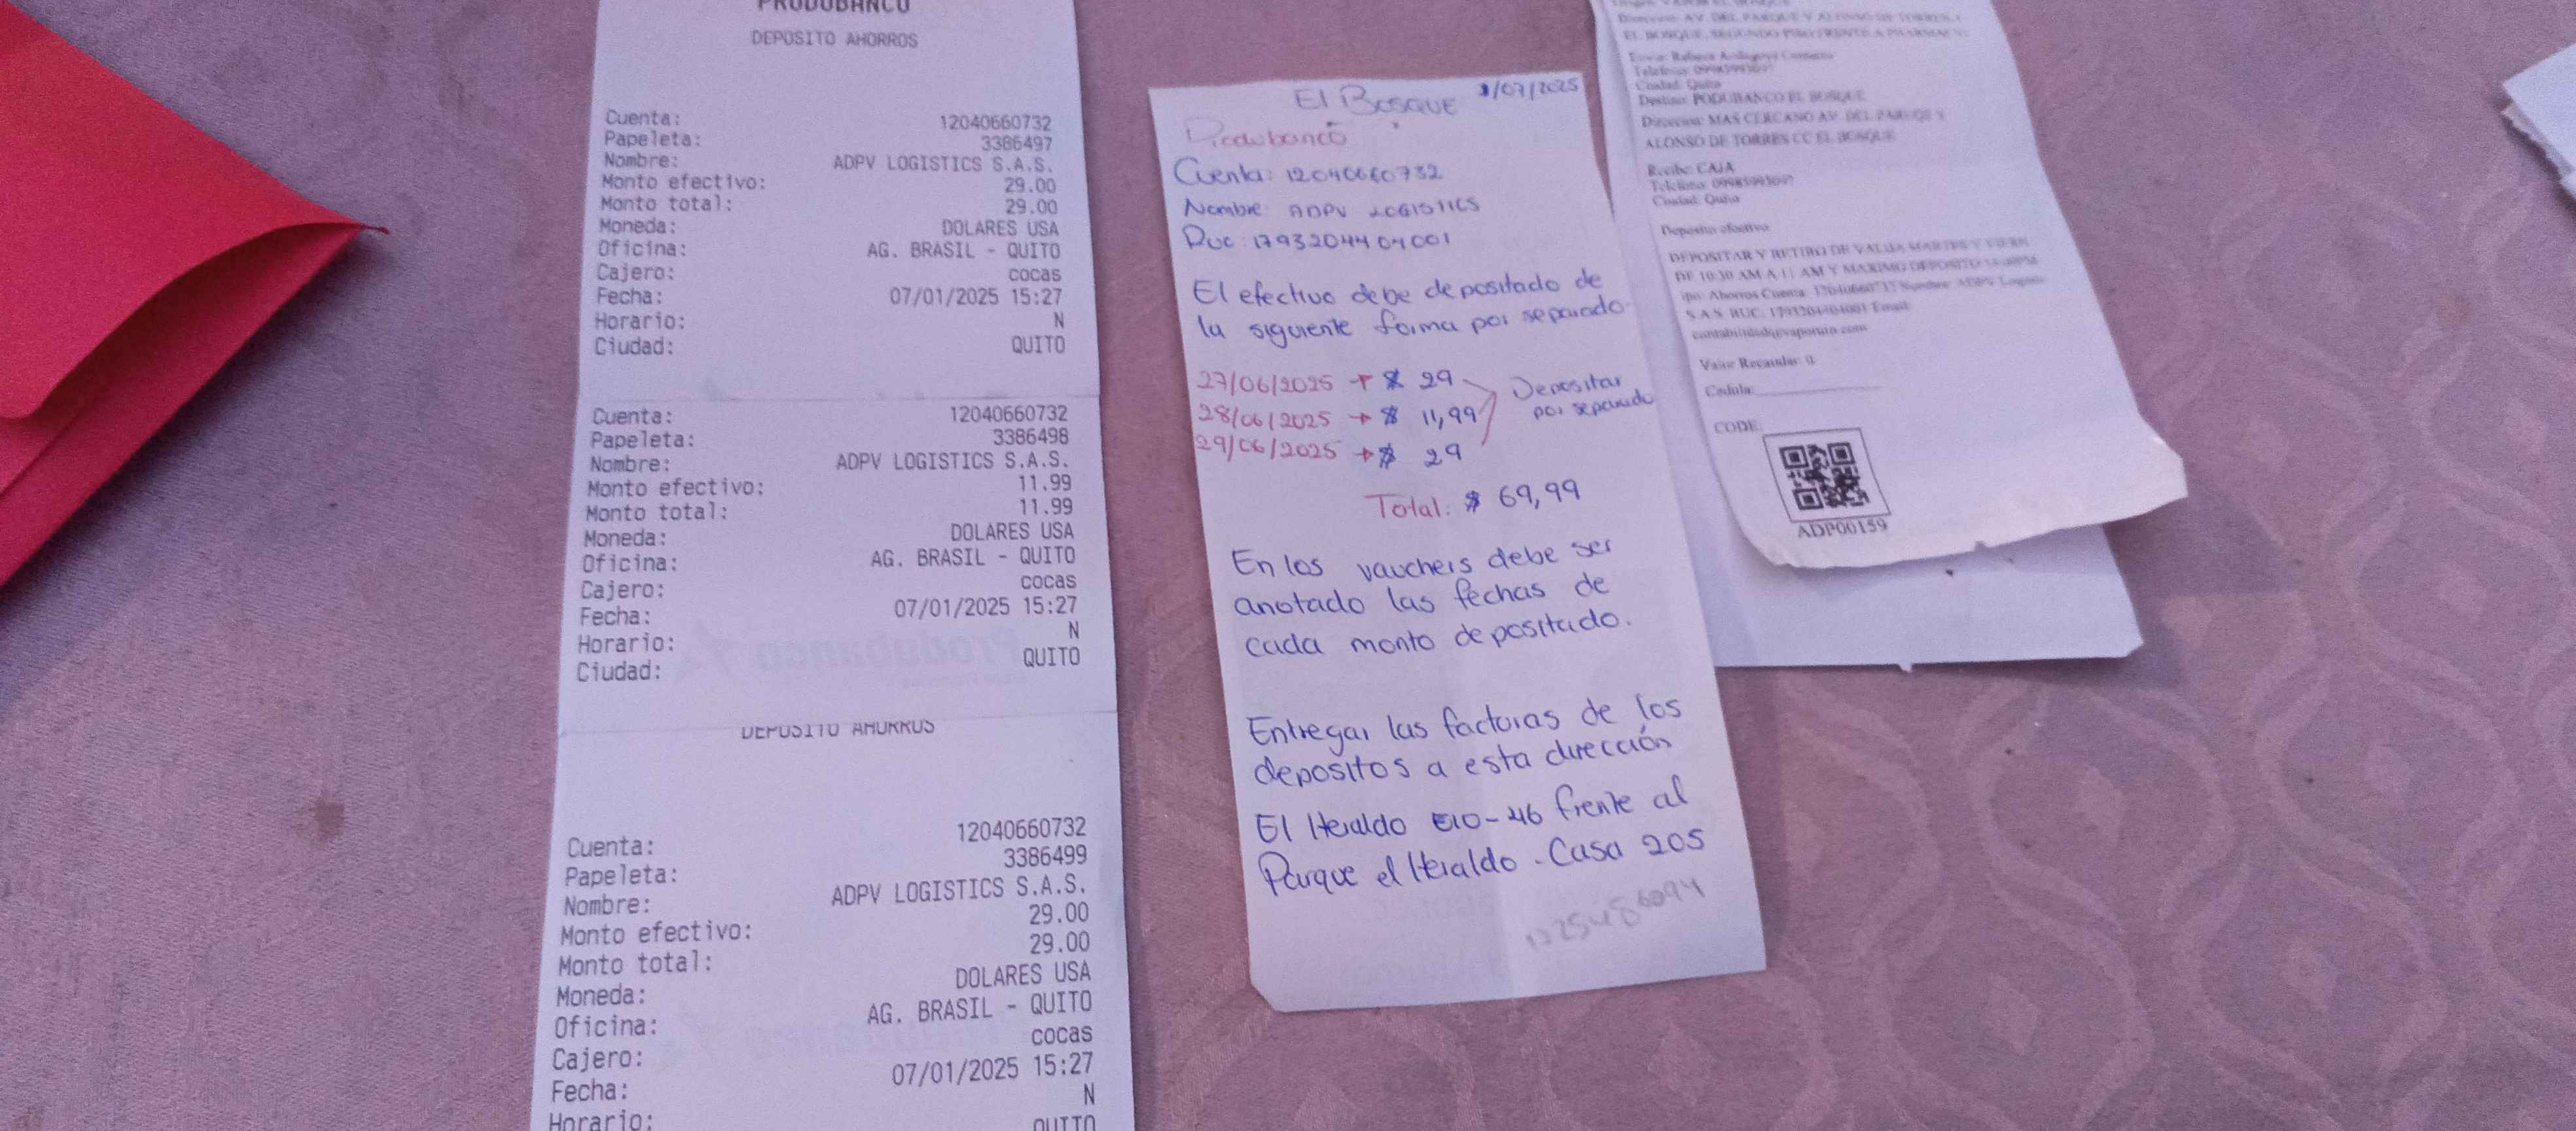 PRODUBANCO
DEPOSITO AHORROS
Cuenta: 12040660732
Papeleta: 3386497
Nombre: ADPV LOGISTICS S.A.S.
Monto efectivo: 29.00
Monto total: 29.00
Moneda: DOLARES USA
Oficina: AG. BRASIL - QUITO
Cajero: cocas
Fecha: 07/01/2025 15:27
Horario: N
Ciudad: QUITO
Cuenta: 12040660732
Papeleta: 3386498
Nombre: ADPV LOGISTICS S.A.S.
Monto efectivo: 11.99
Monto total: 11.99
Moneda: DOLARES USA
Oficina: AG. BRASIL - QUITO
Cajero: cocas
Fecha: 07/01/2025 15:27
Horario: N
Ciudad: QUITO
DEPOSITO AHORROS
Cuenta: 12040660732
Papeleta: 3386499
Nombre: ADPV LOGISTICS S.A.S.
Monto efectivo: 29.00
Monto total: 29.00
Moneda: DOLARES USA
Oficina: AG. BRASIL - QUITO
Cajero: cocas
Fecha: 07/01/2025 15:27
Horario: N
QUITO
El Bosque 1/07/2025
Produbanco
Cuenta: 12040660732
Nombre: ADPV LOGISTICS
Ruc: 1793204404001
El efectivo debe depositado de
la siguiente forma por separado
27/06/2025 → $ 29
28/06/2025 → $ 11,99
29/06/2025 → $ 29
Depositar
por separado
Total: $ 69,99
En los vauchers debe ser
anotado las fechas de
cada monto depositado.
Entregar las facturas de los
depositos a esta dirección
El Heraldo E10-46 frente al
Parque el Heraldo. Casa 205
Direccion: AV. DEL PARQUE Y ALONSO DE TORRES
EL BOSQUE, SEGUNDO PISO FRENTE A
Ciudad: Quito
Destino: PODUBANCO EL BOSQUE
Direccion: MAS CERCANO AV. DEL PARQUE Y
ALONSO DE TORRES CC EL BOSQUE
Recibe: CAJA
Ciudad: Quito
Deposito efectivo
DEPOSITAR Y RETIRO DE VALIJA MARTES Y
DE 10:30 AM A 11 AM Y MAXIMO DEPOSITO
Ahorros Cuenta: Nombre: ADPV
S.A.S. RUC: Email:
Valor Recaudar: 0
Cedula:
CODE
ADP00159